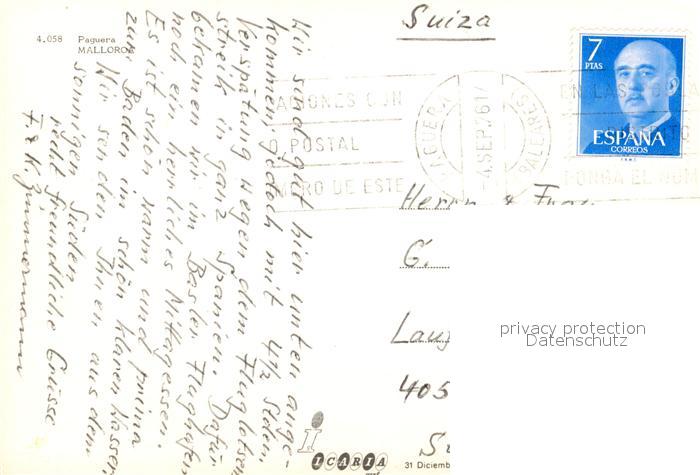 4.058 Paguera
MALLORCA
Wir sind gut hier unten ange-
kommen, jedoch mit 4½ Stden.
Verspätung wegen dem Fluglotsen
streik in ganz Spanien. Dafür
bekamen wir in Basler Flughafen
noch ein herrliches Mittagessen.
Es ist schön warm und prima
zum Baden in schön klaren Wasser.
Wir senden Ihnen aus dem
sonnigen Süden
recht freundliche Grüsse
F. & K. Zimmermann
Suiza
Herrn & Frau
G.
Lau
405
7
PTAS
ESPAÑA
CORREOS
ACIONES CON
O POSTAL
MERO DE ESTE
PAGUERA
-4.SEP.76
BALEARES
PONGA EL NUM
privacy protection
Datenschutz
ICARIA
31 Diciemb